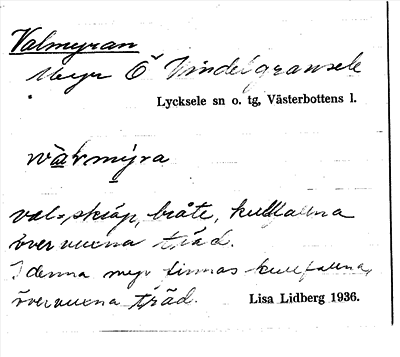 Valmyran
Myr Ö Vindelgransele
Lycksele sn o. tg, Västerbottens l.
val=skräp, bråte, kullfallna
övervuxna träd.
I denna myr finnas kullfallna,
övervuxna träd. Lisa Lidberg 1936.